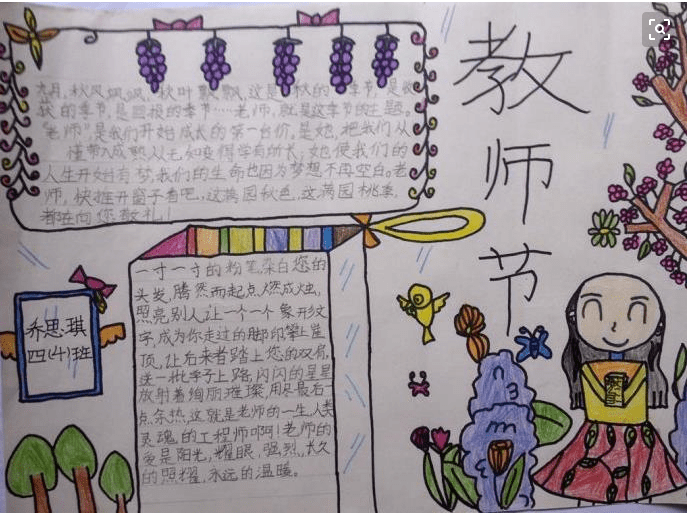 教师节
九月,秋风飒飒,秋叶飘飘,这是秋的季节,是收
获的季节,是回报的季节……老师,就是这季节的主题。
"老师"是我们开始成长的第一台价,是她,把我们从
懂带入成熟从无知变得学有所长,她使我们的
人生开始有梦,我们的生命也因为梦想不再空白。老
师,快推开窗子看吧,这满园秋色,这满园桃李,
都在向您敬礼!
一寸一寸的粉笔,染白您的
头发,腾然而起点燃成烛,
照亮别人让一个一个象形文
字,成为你走过的脚印攀上崖
顶,让后来者踏上您的双肩,
送一批学子上路,闪闪的星星
放射着绚丽璀璨,用尽最后一
点余热,这就是老师的一生,人类
灵魂的工程师啊!老师的
爱是阳光,耀眼,强烈,长久
的照耀,永远的温暖。
乔思琪
四(4)班